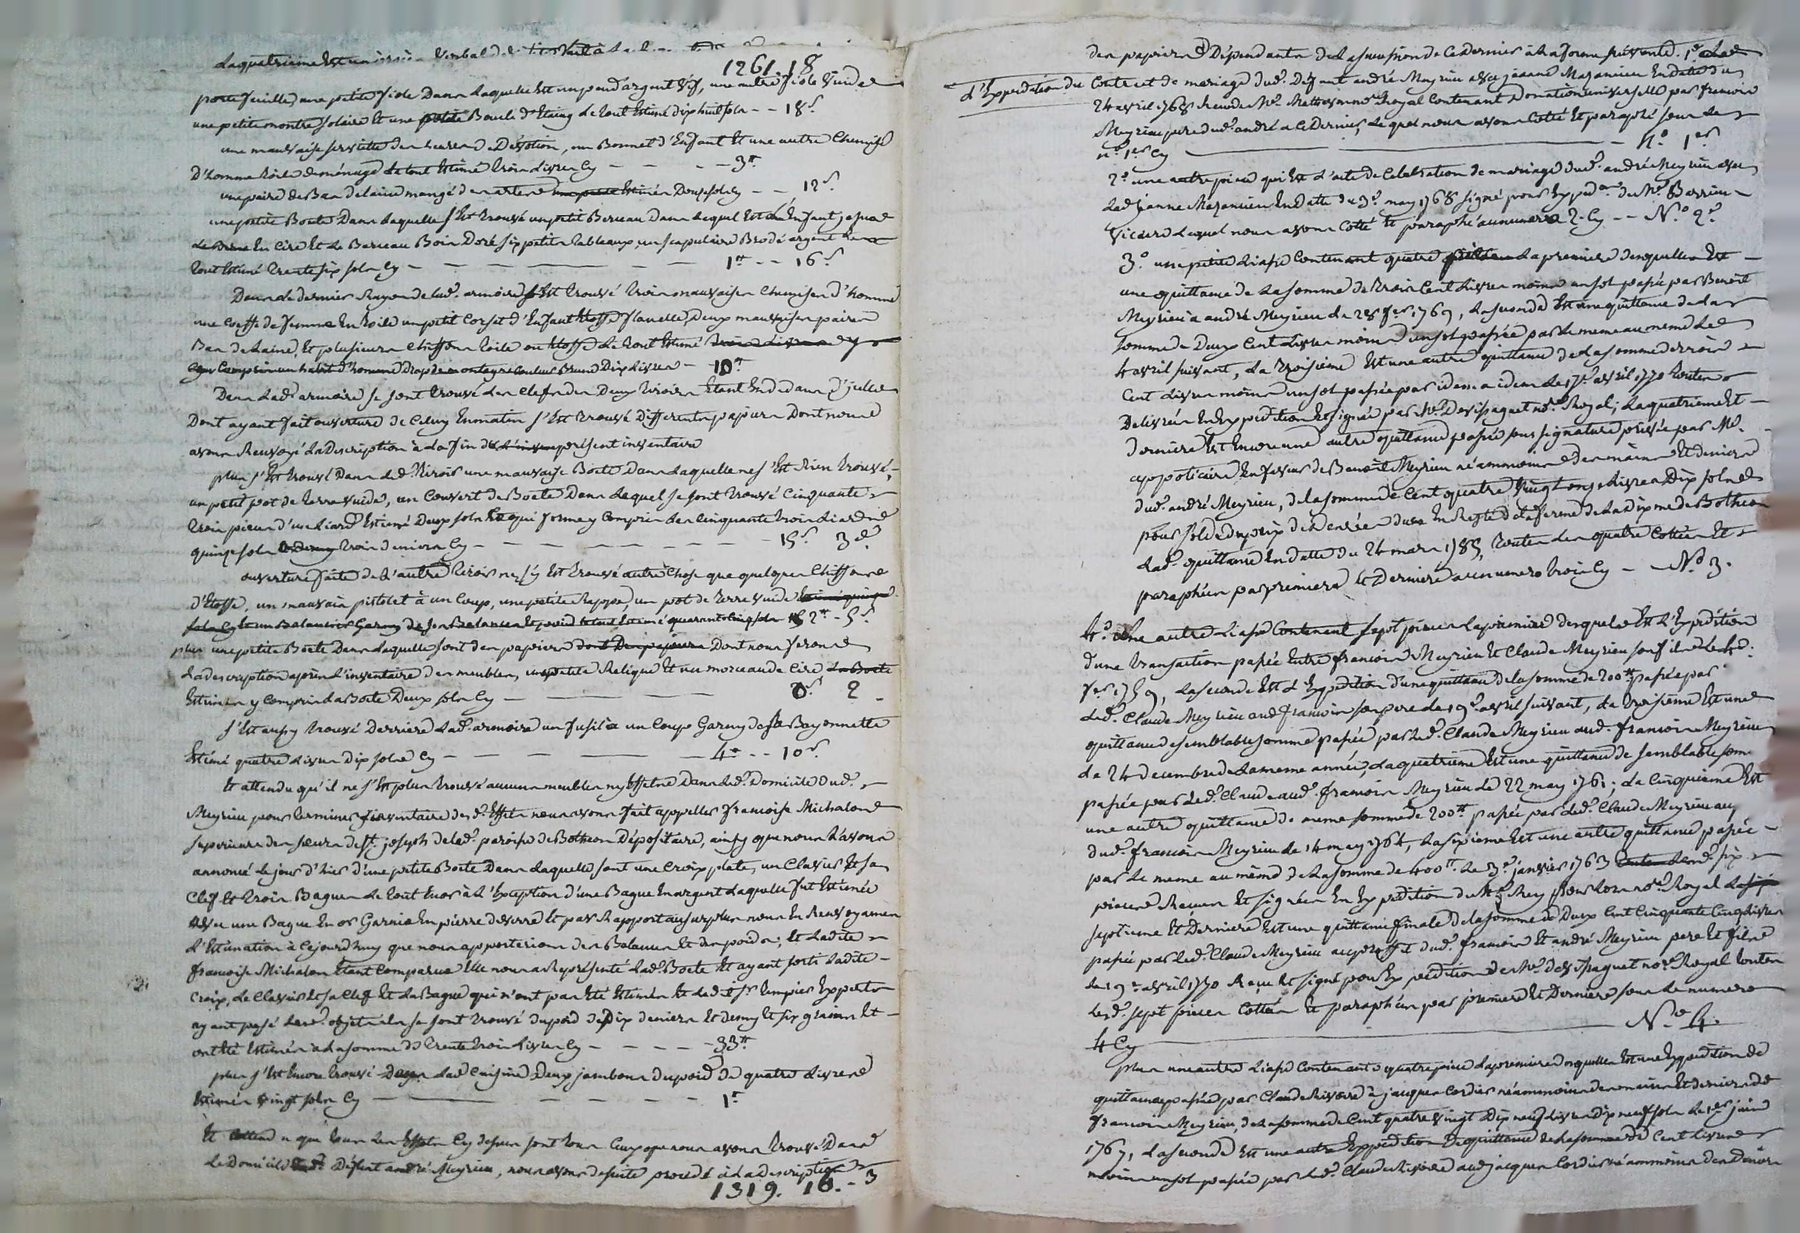 1261. 18
portefeuille, une petite fiole Dans laquelle Est un peu d'argent vif, une autre fiole vuide
une petite montre solaire Et une petite Boucle d'Etaing le tout Estimé dix huit sols -- 18s
une mauvaise serviette des heures de Devotion, un Bonnet d'Enfant Et une autre Chemise
D'homme toile de ménage le tout Estimé trois livres Cy - - - 3tt
une paire de Bas de laine mangé des Estimés Douze sols Cy -- 12s
une petite Boete Dans laquelle s'Est trouvé un petit Berceau Dans lequel Est un Enfant jesus
En Cire Et le Berceau Bois Doré six petits tableaux un scapulaire Brodé argent
tout Estimé trente six sols Cy - 1tt -- 16s
Dans le dernier Rayon de lad. armoire s'Est trouvé trois mauvaises Chemises d'homme
une Coeffe de femme En toile un petit Corset d'Enfant Etoffe flanelle, Deux mauvaises paires
Bas de laine, Et plusieurs Chiffons toile ou Etoffe le tout Estimé
Dix livres - 10tt
Dans lad. armoire se sont trouvé les Clefs des Deux tiroirs Etant En dedans d'jcelle
Dont ayant fait ouverture de Celuy En matin s'Est trouvé Differents papiers Dont nous
avons Renvoyé la Description à la fin du présent inventaire
plus s'Est trouvé Dans led. tiroir une mauvaise Boete Dans laquelle ne s'Est Rien trouvé,
un petit pot de terre vuide, un Couvert de Boete Dans lequel se sont trouvé Cinquante
trois pieces d'un liard Estimé Deux sols Ce qui forme y Compris les Cinquante trois liards
quinze sols trois deniers Cy - 15s 3d
ouverture faite de l'autre tiroir ne s'y Est trouvé autre Chose que quelques Chiffons
d'Etoffe, un mauvais pistolet à un Coup, une petite Rappe, un pot de terre vuide
quarante Cinq sols 2tt - 5s
plus une petite Boete Dans laquelle sont des papiers Dont nous ferons
la description après l'inventaire des meubles, une petite Relique Et un morceau de Cire
Estimés y Compris la Boete Deux sols Cy - 2
s'Est aussy trouvé Derriere lad. armoire un fusil à un Coup Garny de sa Bayonnette
Estimé quatre livres Dix sols Cy - 4tt -- 10s
Et attendu qu'il ne s'Est plus trouvé aucuns meubles ny Effets Dans led. Domicile Dud.
Meyrieu pour terminer l'inventaire desd. Effets nous avons fait appeller francoise Michalon
superieure des soeurs de St. joseph de lad. paroisse de Botheon Dépositaire, ainsy que nous l'avons
annoncé le jour d'hier d'une petite Boete Dans laquelle sont une Croix plate, un Clavier Et sa
Clef Et trois Bagues le tout En or à l'Exception d'une Bague En argent laquelle fut Estimée
avec une Bague En or Garnie En pierre de verre Et par Rapport au surplus nous En Renvoyames
l'Estimation à Cejourd'huy que nous apporterions des Balances Et des poids; Et ladite
francoise Michalon Etant Comparue Elle nous a Représenté lad. Boete Et ayant sorti ladite
Croix, le Clavier Et sa Clef Et la Bague qui n'ont pas Eté Estimés Et lesdits Srs. Experts
ayant pesé lesd. objets ils se sont trouvé du poid de Dix deniers Et demy Et six grains Et
ont Eté Estimés à la somme de trente trois livres Cy - - - 33tt
plus s'Est Encore trouvé Dans lad. Cuisine Deux jambons du poid de quatre livres
Estimés vingt sols Cy - 1tt
Et attendu que tous les Effets Cy dessus sont tous Ceux que nous avons trouvé Dans
le domicile dud. Défunt andré Meyrieu, nous avons de suite procedé à la description
1319. 16. - 3
des papiers Dépendants de la succession de Ce dernier à la forme suivante. 1o
l'Expedition du Contract de mariage dud. Défunt andré Meyrieu avec jeanne Mazancieu En date du
24 avril 1768 Recu de Me. Mathon nore. Royal Contenant Donation universelle par francois
Meyrieu pere dud. andré a Ce Dernier, lequel nous avons Cotté Et paraphé sous le
no. 1er Cy - No. 1er
2o une autre piece qui Est l'acte de Celebration de mariage dud. andré Meyrieu avec
lad. jeanne Mazancieu En date du 3e. may 1768 signé pour Expedon. du Mr. Berriue
vicaire lequel nous avons Cotté Et paraphé au numero 2. Cy -- No. 2o
3o une petite liasse Contenant quatre pieces la premiere desquelles Est
une quittance de la somme de trois Cent livres moins un sol passée par Benoit
Meyrieu à andré Meyrieu le 28 fer. 1769, la seconde Est une quittance de la
somme de Deux Cent livres moins un sol passée par le meme au meme le
4 avril suivant, la troisieme Est une autre quittance de la somme de trois
Cent livres moins un sol passée par idem a idem le 17e. avril 1770 toutes
Delivrées En Expedition Et signée par Me. Devispaquet nore. Royal; la quatrieme Et
derniere Est Encore une autre quittance passée sous signature privée par Mr.
apoticaire En faveur de Benoit Meyrieu néammoins des mains Et deniers
dud. andré Meyrieu, de la somme de Cent quatre vingt onze livres Dix sols
pour solde du prix de Denrées du En Reste de la ferme de la Dixme de Botheon
lad. quittance En datte du 24 mars 1785, toutes les quatre Cottées Et
paraphées par premiere Et Derniere au numero trois Cy - No. 3.
4o. une autre liasse Contenant sept pieces la premiere desquelles Est l'Expédition
d'une transaction passée Entre francois Meyrieu Et Claude Meyrieu son fils le
1759, la seconde Est l'Expedition d'une quittance de la somme de 200tt passée par
led. Claude Meyrieu aud. francois son pere le 19e. avril suivant, la troisieme Est une
quittance de semblable somme passée par led. Claude Meyrieu aud. francois Meyrieu
le 24 decembre de la meme année, la quatrieme Est une quittance de semblable somme
passée par led. Claude aud. francois Meyrieu le 22 may 1761; la Cinquieme Est
une autre quittance de meme somme de 200tt passée par led. Claude Meyrieu au
dud. francois Meyrieu le 14 may 1764, la sixieme Est une autre quittance passée
par le meme au meme de la somme de 400tt le 3e. janvier 1763 lesd. six
pieces Recues Et signées En Expedition de Me. Rey nore. Royal la
septieme Et Derniere Est une quittance finale de la somme de Deux Cent Cinquante Cinq livres
passée par led. Claude Meyrieu au proffit dud. francois Et andré Meyrieu pere Et fils
le 19e avril 1770 Recue Et signé pour Expedition de Me. devispaquet nore. Royal toutes
lesd. sept pieces Cottées Et paraphées par premiere Et Derniere sous le numero
4 Cy - No. 4.
plus une autre liasse Contenant quatre pieces la premiere desquelles Est une Expedition de
quittance passée par Claude Rivoire à jacques Cordier néammoins des mains Et deniers de
francois Meyrieu, de la somme de Cent quatre vingt Dix neuf livres Dix neuf sols le 1er juin
1767, la seconde Est une autre Expedition de quittance de la somme de Cent livres
moins un sol passée par led. Claude Rivoire aud. jacques Cordier néammoins des deniers